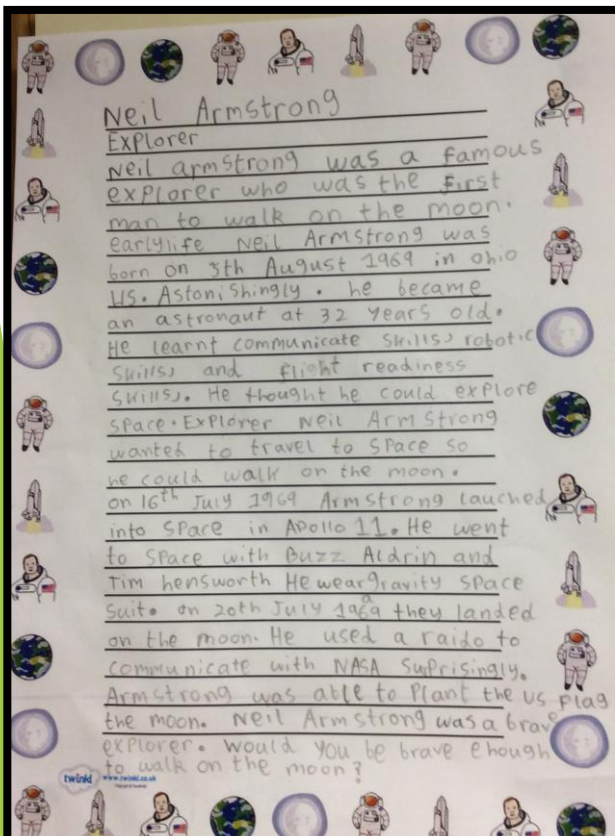 Neil Armstrong
Explorer
Neil armstrong was a famous
explorer who was the first
man to walk on the moon.
earlylife Neil Armstrong was
born on 5th August 1969 in ohio
US. Astonishingly. he became
an astronaut at 32 years old.
He learnt communicate skills, robotic
skills, and flight readiness
skills,. He thought he could explore
space. Explorer Neil Armstrong
wanted to travel to space so
he could walk on the moon.
on 16th July 1969 Armstrong lauched
into space in Apollo 11. He went
to space with Buzz Aldrin and
Tim hensworth He wear gravity space
suit. on 20th July 1969 they landed
on the moon. He used a raido to
communicate with NASA Surprisingly.
Armstrong was able to plant the US plag
the moon. Neil Armstrong was a brave
explorer. would you be brave enough
to walk on the moon?
twinkl www.twinkl.co.uk